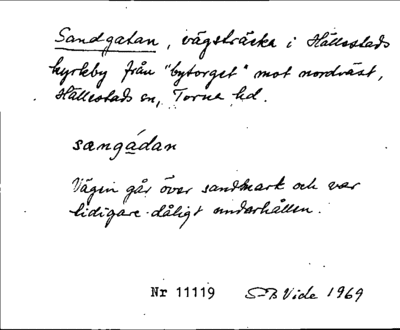 Sandgatan, vägsträcka i Hällestads
kyrkby från "bytorget" mot nordväst,
Hällestads sn, Torna hd.
sængádan
Vägen går över sandmark och var
tidigare dåligt underhållen.
Nr 11119 S-B Vide 1969